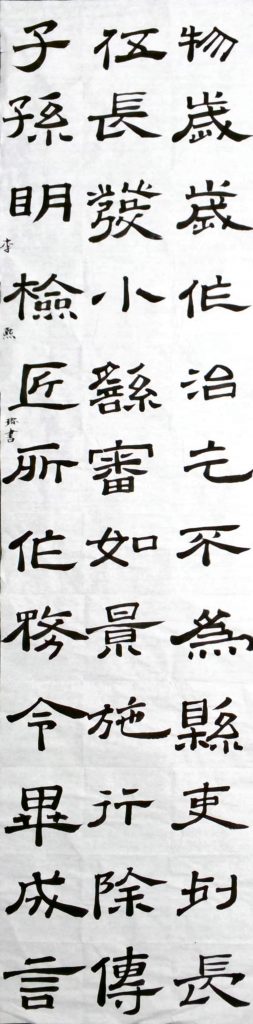 物歲歲作治乇不為縣吏列長
伍長發小繇審如景施行除傳
子孫明檢匠所作務令畢成言
李熙書